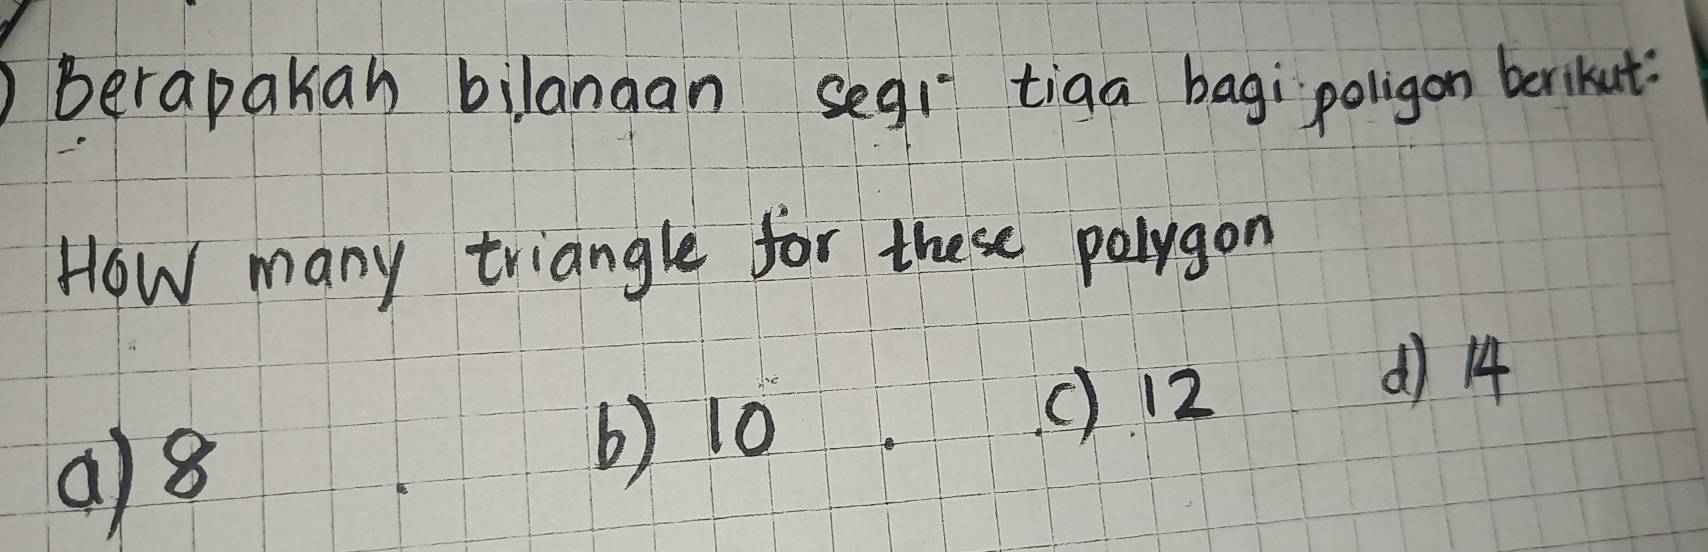 ) Berapakah bilangan segi tiga bagi poligon berikut:
How many triangle for these polygon
a) 8 b) 10 c) 12 d) 14